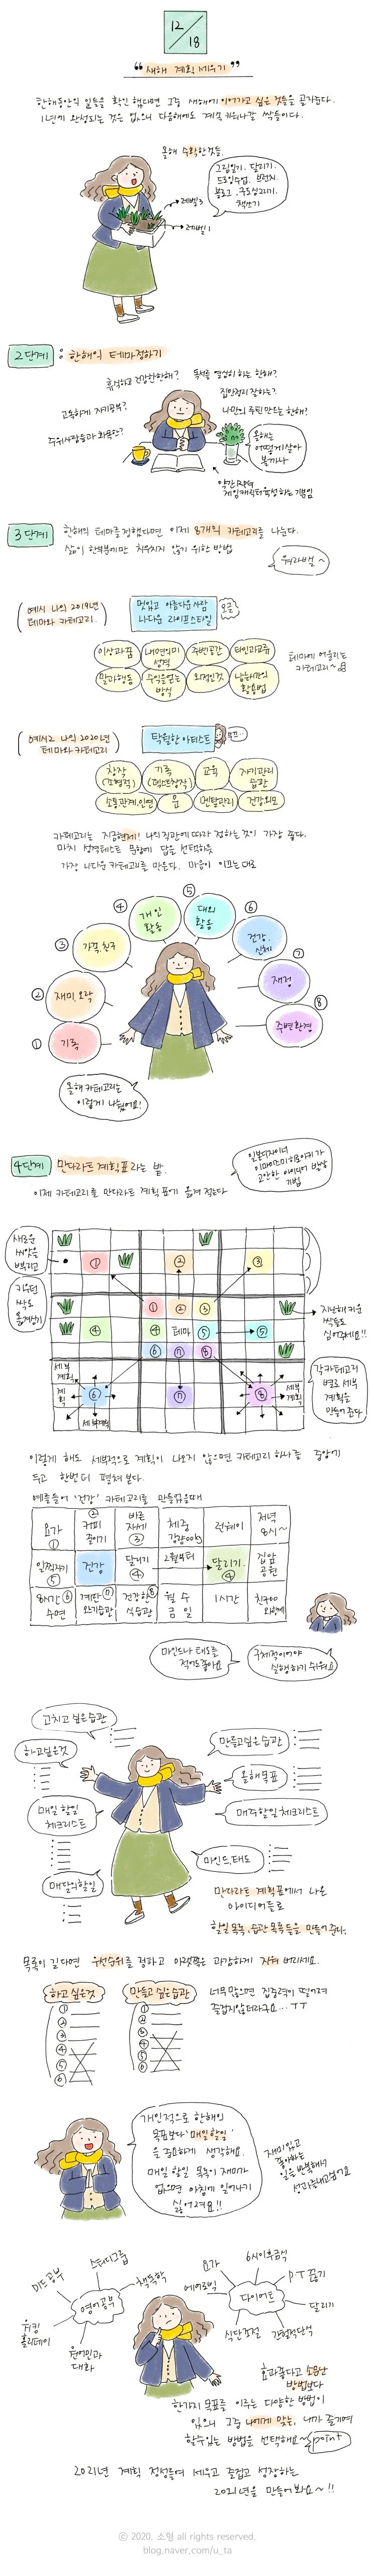 12/18
"새해 계획 세우기"
한해동안의 일들을 확인 했다면 그중 새해에 이어가고 싶은 것들을 골라준다.
1년만에 완성되는 것은 없으니 다음해에도 계속 키워나갈 싹들이다.
올해 수확한것들.
그림일기. 달리기.
드로잉수업. 브런치.
블로그. 굿노트
책쓰기
레벨3
레벨1
2단계 : 한해의 테마정하기
휴식하고 건강한한해?
독서를 열심히 하는 한해?
고독하게 자기공부?
집안정리 잘하는?
주위사람들과 화목한?
나만의 루틴 만드는 한해?
올해는
어떻게 살아
볼까나
약간 RPG
게임캐릭터 육성하는 느낌
3단계
한해의 테마를 정했다면 이제 8개의 카테고리를 나눈다.
삶이 한부분에만 치우치지 않기 위한 방법
워라벨~
(예시 나의 2019년
테마와 카테고리.)
멋있고 아름다운 사람
나다운 라이프스타일
이상과 꿈
내면의미
성격
주변공간
타인과교류
말과행동
수익을얻는
방식
외적인것
테마에 어울리는
카테고리~
(예시2 나의 2020년
테마와 카테고리)
탁월한 아티스트
창작
(그림력)
기록
교육
자기관리
습관
소통관계.인연
몸
멘탈관리
건강외모
카테고리는 지금현재! 나의 직관에 따라 정하는것이 가장 좋다.
마치 성격테스트 문항에 답을 선택하듯
가장 나다운 카테고리를 만든다. 마음이 이끄는대로
④ 개인
활동
⑤ 대외
활동
③ 가족.친구
⑥ 건강.
신체
② 재미.오락
⑦ 재정
① 기록
⑧ 주변환경
올해 카테고리는
이렇게 나눴어요!
4단계
만다라트 계획표 라는 밭.
일본디자이너
이마이즈미 히로아키가
고안한 아이디어 발상
기법
이제 카테고리를 만다라트 계획표에 옮겨 적는다
새로운
씨앗을
뿌리고
키우던
싹도
옮겨심기
① ② ③
① ② ③
④ ④ 테마 ⑤ ⑤
⑥ ⑦ ⑧
세부
계획
계획
⑥ ⑦ ⑧
세부
계획
세부계획
지난해 키운
싹들도
심어주세요!!
각카테고리
별로 세부
계획을
만들어 준다
이렇게 해도 세부적으로 계획이 나오지 않으면 카테고리 하나를 중앙에
두고 한번 더 펼쳐 본다.
예를들어 '건강' 카테고리를 만들었을때
요가
①
②
커피
줄이기
바른
자세
③
체중
감량00kg
런데이
저녁
8시~
일찍자기
⑤
건강
달리기
④
2월부터
달리기.
④
집앞
공원
8시간 ⑥
수면
계단 ⑦
오르기습관
건강한 ⑧
식습관
월 수
금 일
1시간
친구00
와함께
마인드나 태도를
적어도 좋아요
구체적이어야
실행하기 쉬워요
고치고 싶은 습관
하고싶은것
만들고싶은습관
올해목표
매일 할일
체크리스트
매주할일 체크리스트
매달의할일
마인드.태도
만다라트 계획표에서 나온
아이디어들로
할일 목록, 습관 목록 들을 만들어 준다.
목록이 길다면 우선순위를 정하고 아랫쪽은 과감하게 지워 버리세요.
하고 싶은것
①
②
③
④
⑤
⑥
만들고 싶은습관
①
②
③
④
⑤
⑥
너무 많으면 집중력이 떨어져
즐겁지않더라구요...ㅜㅜ
개인적으로 한해의
목표보다 '매일할일'
을 중요하게 생각해요.
매일 할일 목록이 재미가
없으면 아침에 일어나기
싫어져요!!
재미있고
좋아하는
일을 반복해서
성과를내고싶어요
미드공부
스터디그룹
책독학
영어공부
워킹
홀리데이
원어민과
대화
요가
6시이후금식
에어로빅
PT 끊기
다이어트
달리기
식단조절
간헐적단식
효과좋다고 소문난
방법보다
한가지 목표를 이루는 다양한 방법이
있으니 그중 나에게 맞는, 내가 즐기며
할수있는 방법을 선택해요~ point
2021년 계획 정성들여 세우고 즐겁고 성장하는
2021년을 만들어 봐요~!!
© 2020. 소형 all rights reserved.
blog.naver.com/u_ta